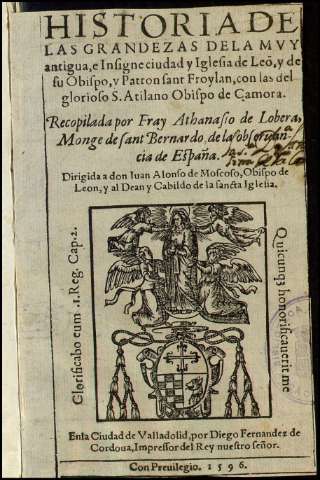 HISTORIA DE
LAS GRANDEZAS DE LA MVY
antigua, e Insigne ciudad y Iglesia de Leõ, y de
su Obispo, y Patron sant Froylan, con las del
glorioso S. Atilano Obispo de Çamora.
Recopilada por Fray Athanasio de Lobera,
Monge de sant Bernardo, de la obseruan-
cia de España.
Dirigida a don Iuan Alonso de Moscoso, Obispo de
Leon, y al Dean y Cabildo de la sancta Iglesia.
Quicunq; honorificauerit me
Glorificabo eum .1. Reg. Cap. 2.
En la Ciudad de Valladolid, por Diego Fernandez de
Cordoua, Impressor del Rey nuestro señor.
Con Preuilegio. 1596.